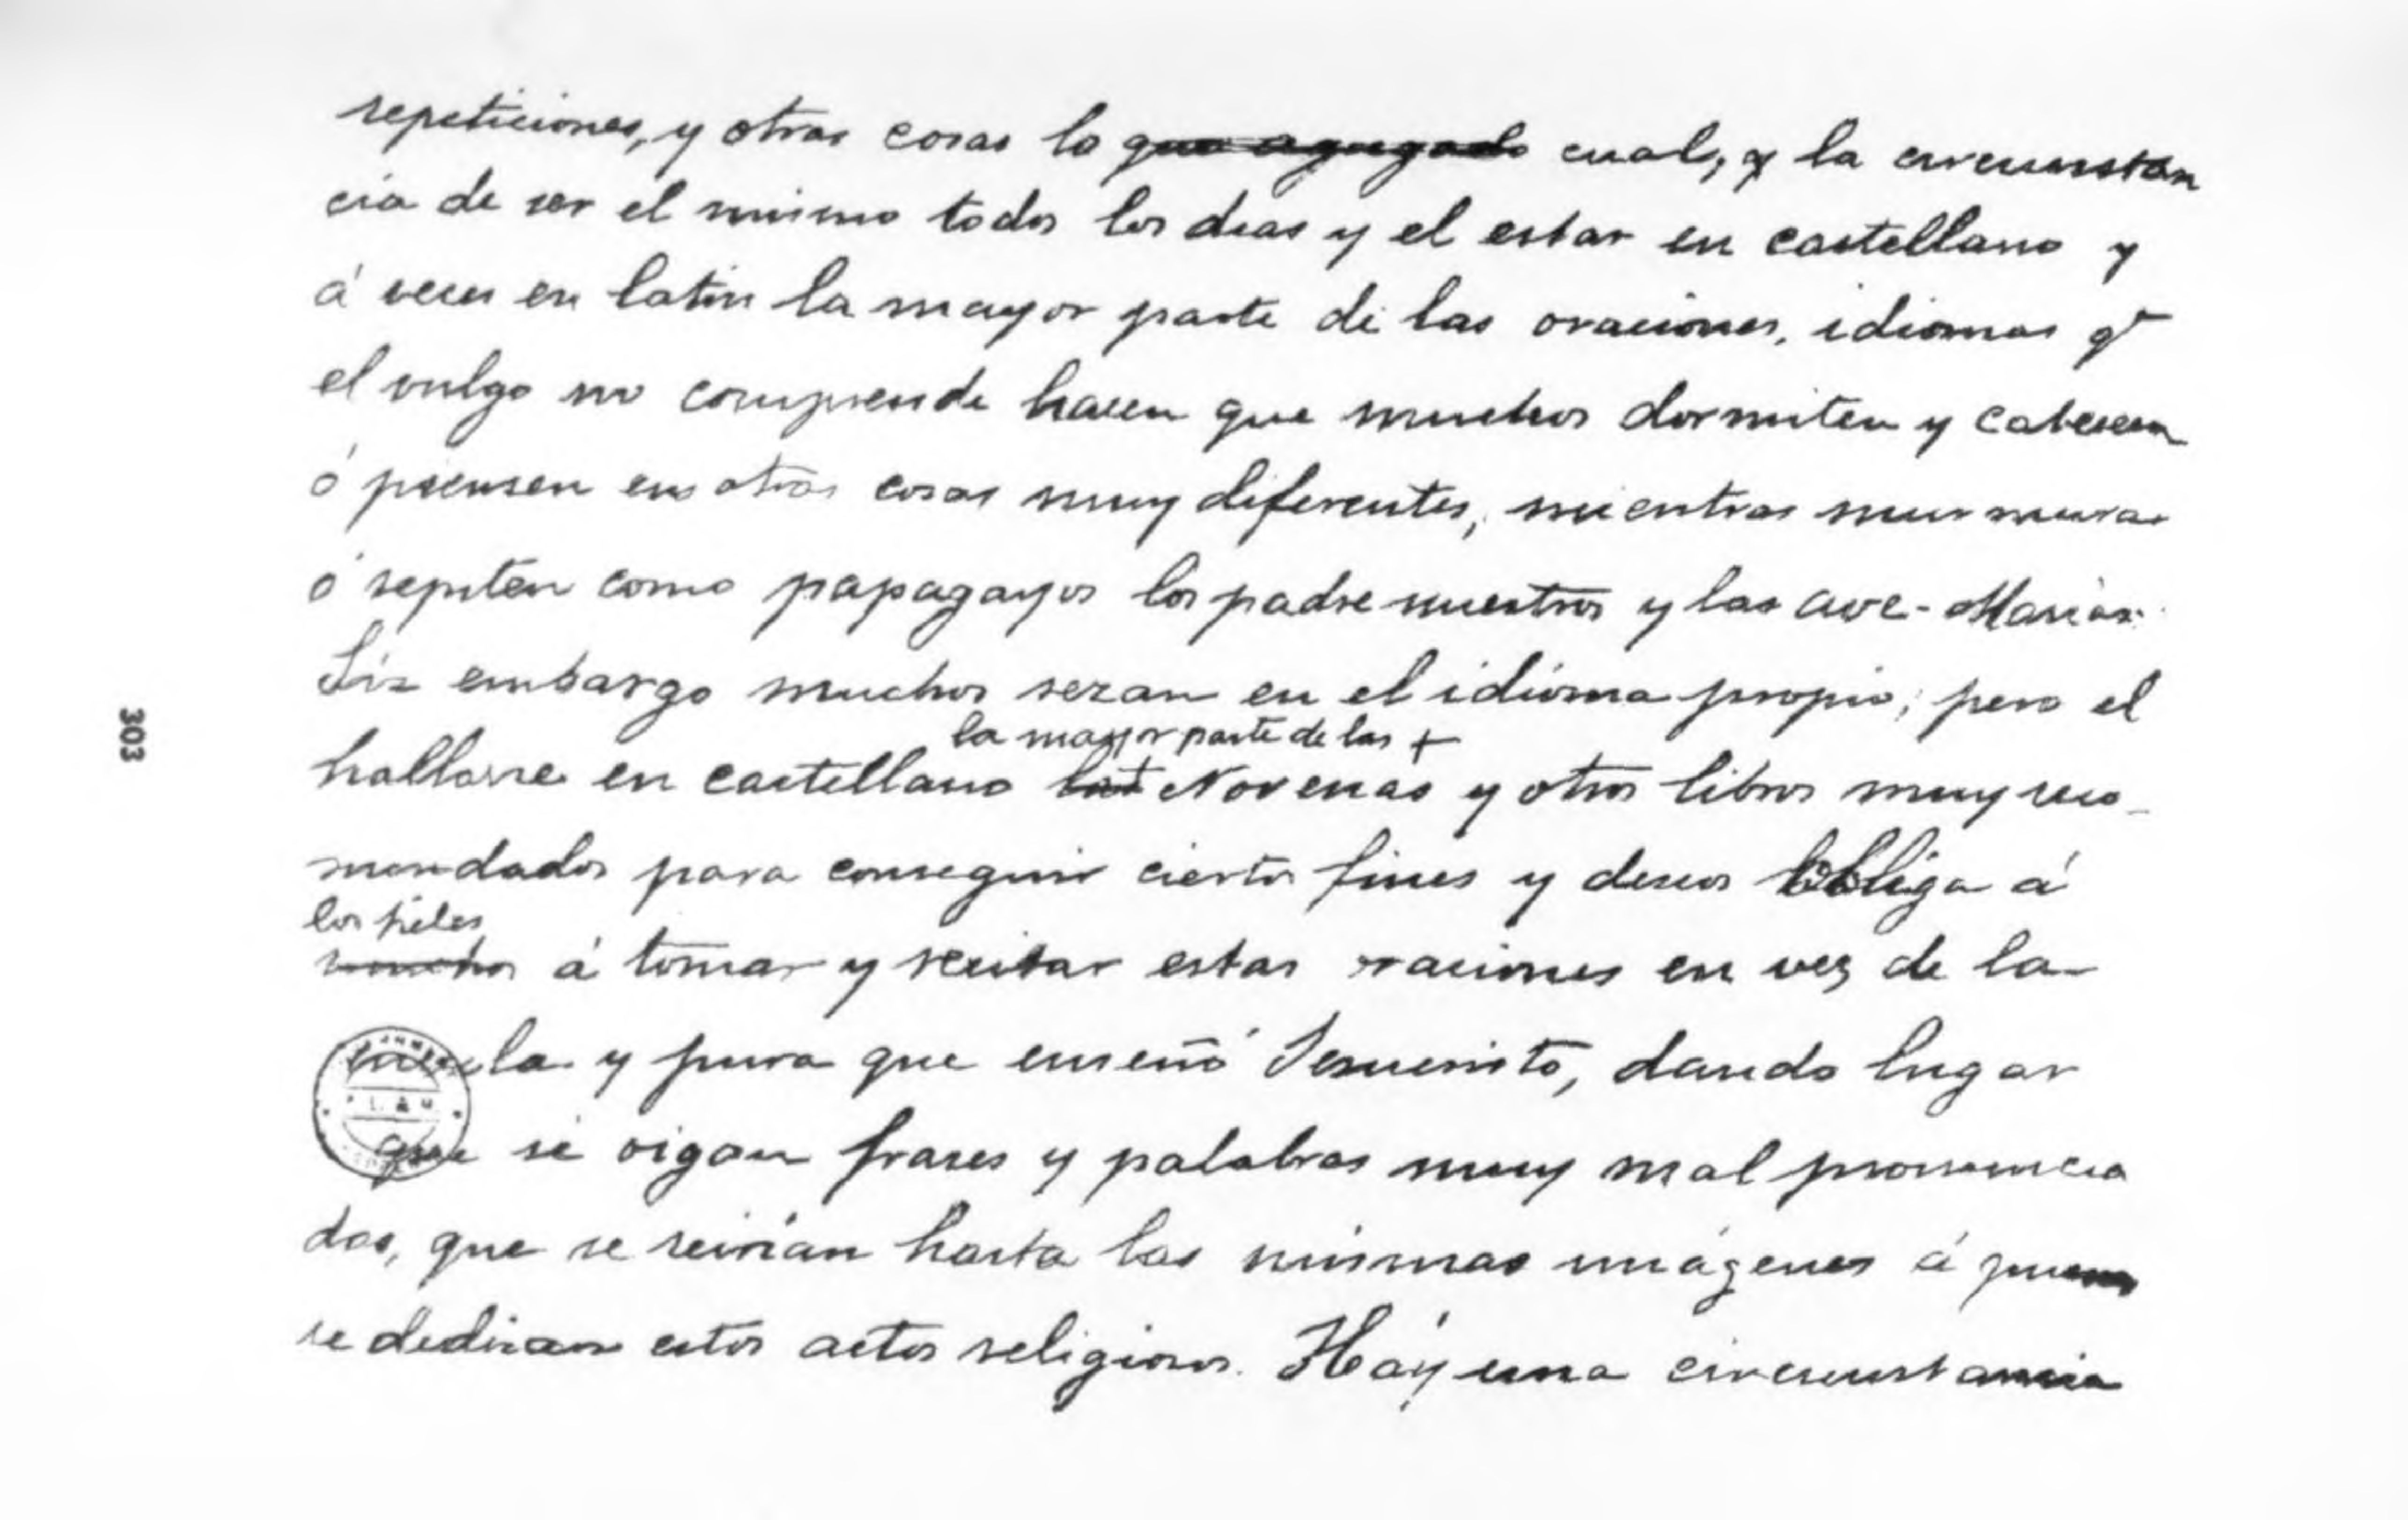 repeticiones, y otras cosas lo que agregado cual, y la circunstan
cia de ser el mismo todos los dias y el estar en castellano y
á veces en latin la mayor parte de las oraciones, idiomas q.e
el vulgo no comprende hacen que muchos dormiten y cabeceen
ó piensen en otras cosas muy diferentes, mientras murmuran
ó repiten como papagayos los padre nuestros y las ave-Marias.
Sin embargo muchos rezan en el idioma propio; pero el
la mayor parte de las +
hallarse en castellano las + Novenas y otros libros muy reco-
mendados para conseguir ciertos fines y deseos obliga á
los fieles
muchos á tomar y recitar estas oraciones en vez de la
sencilla y pura que enseñó Jesucristo, dando lugar
que se oigan frases y palabras muy mal pronuncia
das, que se reirían hasta las mismas imágenes á quienes
se dedican estos actos religiosos. Hay una circunstancia
303